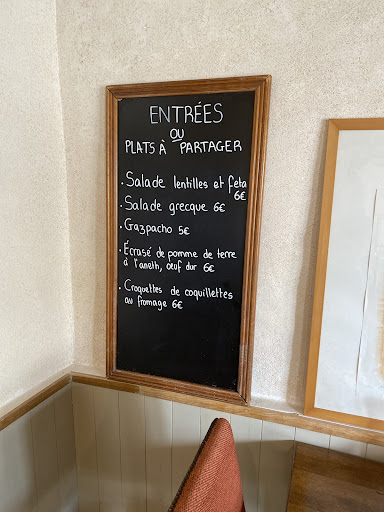 ENTRÉES
OU
PLATS À PARTAGER
. Salade lentilles et feta
6€
. Salade grecque 6€
. Gazpacho 5€
. Écrasé de pomme de terre
à l'aneth, œuf dur 6€
. Croquettes de coquillettes
au fromage 6€